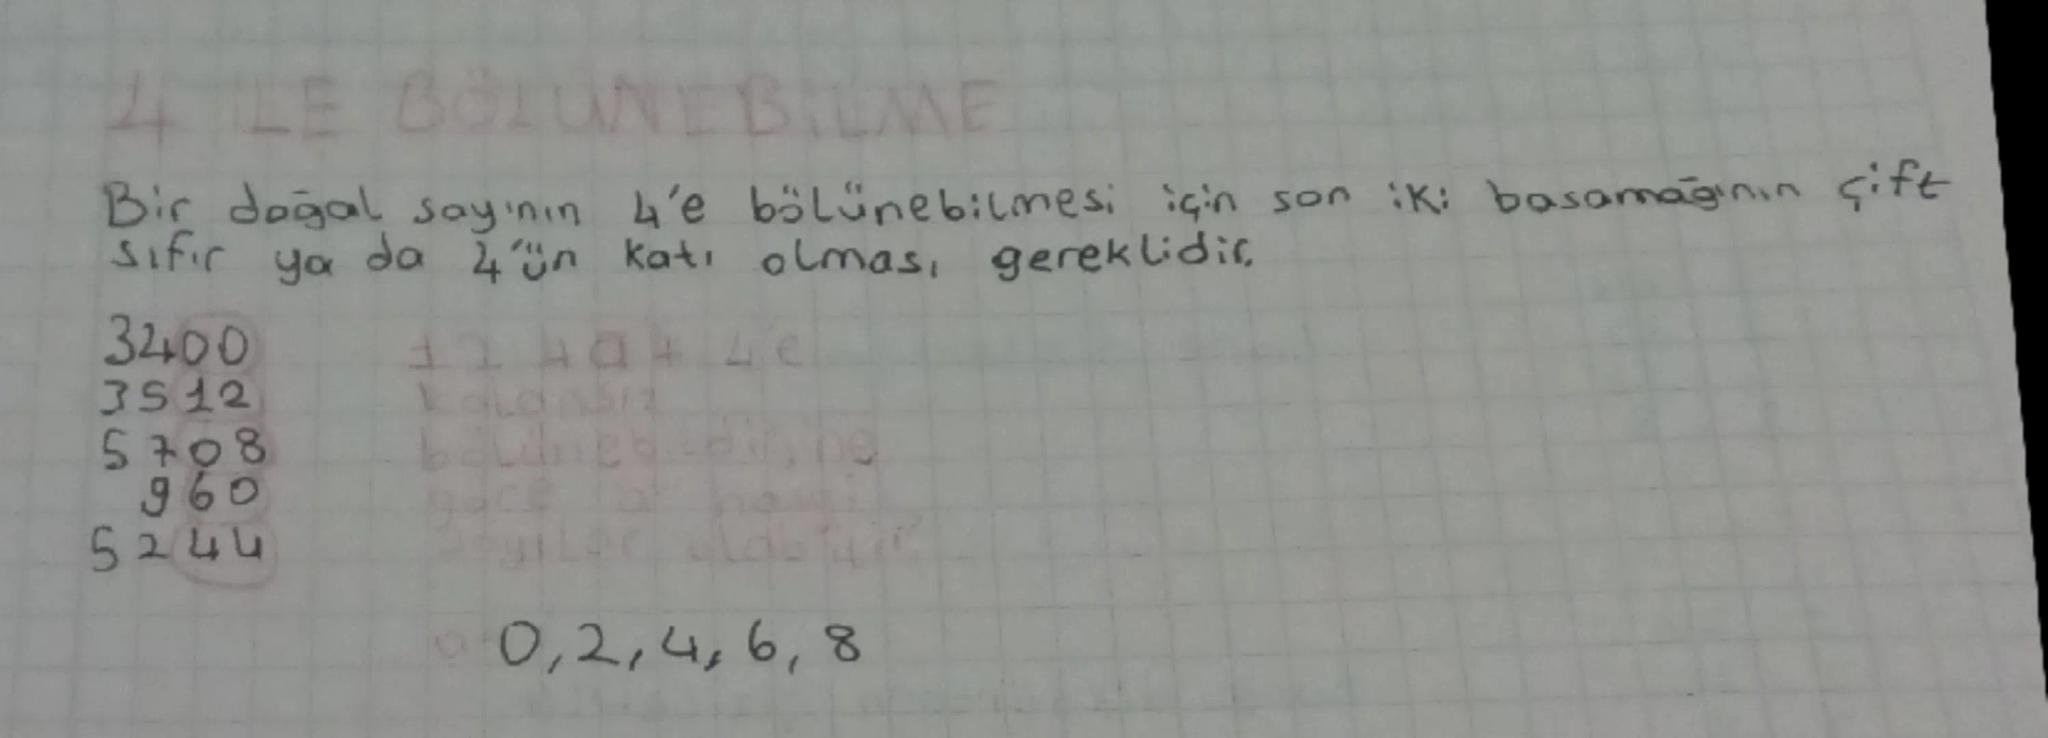 4 İLE BÖLÜNEBİLME
Bir doğal sayının 4'e bölünebilmesi için son iki basamağının çift
sıfır ya da 4'ün katı olması gereklidir.
3400
3512
5708
960
5244
4e
kalansız
göre a hangi
sayılar olabilir?
0,2,4,6,8